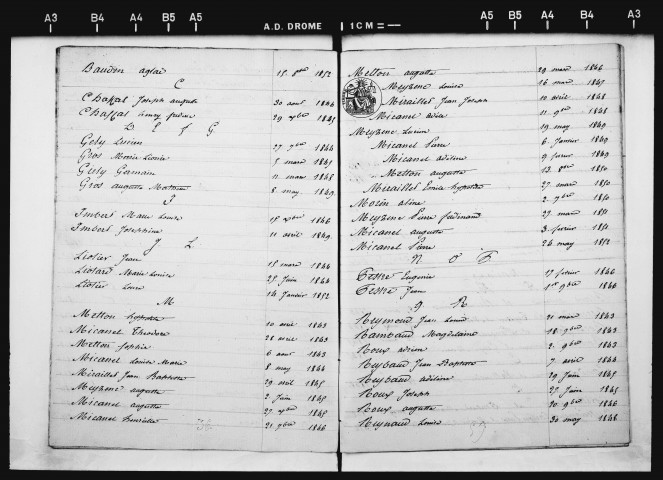 A3 B4 A4 B5 A5 A.D. DROME 1CM = A5 B5 A4 B4 A3
Baudon aglaé 15 8bre 1852
C
Chassal Joseph auguste 30 aout 1844
Chassal henry 29 1845
D E F G
Gely Lucien 27 1844
Gros Marie Louise 5 mars 1845
Gely Germain 11 mars 1848
Gros auguste 8 may 1849
I
Imbert Marie Louise 15 1846
Imbert Josephine 11 avril 1849
J L
Liotier Jean 15 mars 1844
Liotard Marie Louise 25 Juin 1844
Liotier Louis 14 Janvier 1852
M
Metton hypolite 10 avril 1843
Micanel Theodore 28 avril 1843
Metton Sophie 6 aout 1843
Micanel Louise Marie 8 may 1844
Miraillet Jean Baptiste 29 avril 1845
Meyzene auguste 2 Juin 1845
Micanel auguste 27 1845
Micanel henriette 21 1846
Metton auguste 29 mars 1846
Meyzene Louise 16 mars 1847
Miraillet Jean Joseph 10 avril 1848
Micanel 11 9bre 1848
Meyzene Lucien 19 may 1849
Micanel Pierre 6 Janvier 1849
Micanel adeline 9 fevrier 1849
Metton auguste 13 8bre 1850
Miraillet Emile hypolite 27 mars 1850
Morin aline 2 7bre 1850
Meyzene Pierre ferdinand 27 mars 1851
Micanel auguste 3 fevrier 1851
Micanel Pierre 26 may 1852
N O P
Pestre Eugenie 17 fevrier 1846
Pestre Jean 1er 9bre 1846
Q R
Reymond Jean Louis 21 mars 1843
Rambaud Magdelaine 18 9bre 1843
Roux adrien 2 9bre 1843
Reybaud Jean Baptiste 7 avril 1844
Reybaud adeline 29 Juin 1845
Roux Joseph 27 Juin 1845
Roux auguste 20 9bre 1846
Reynaud Louise 30 may 1848